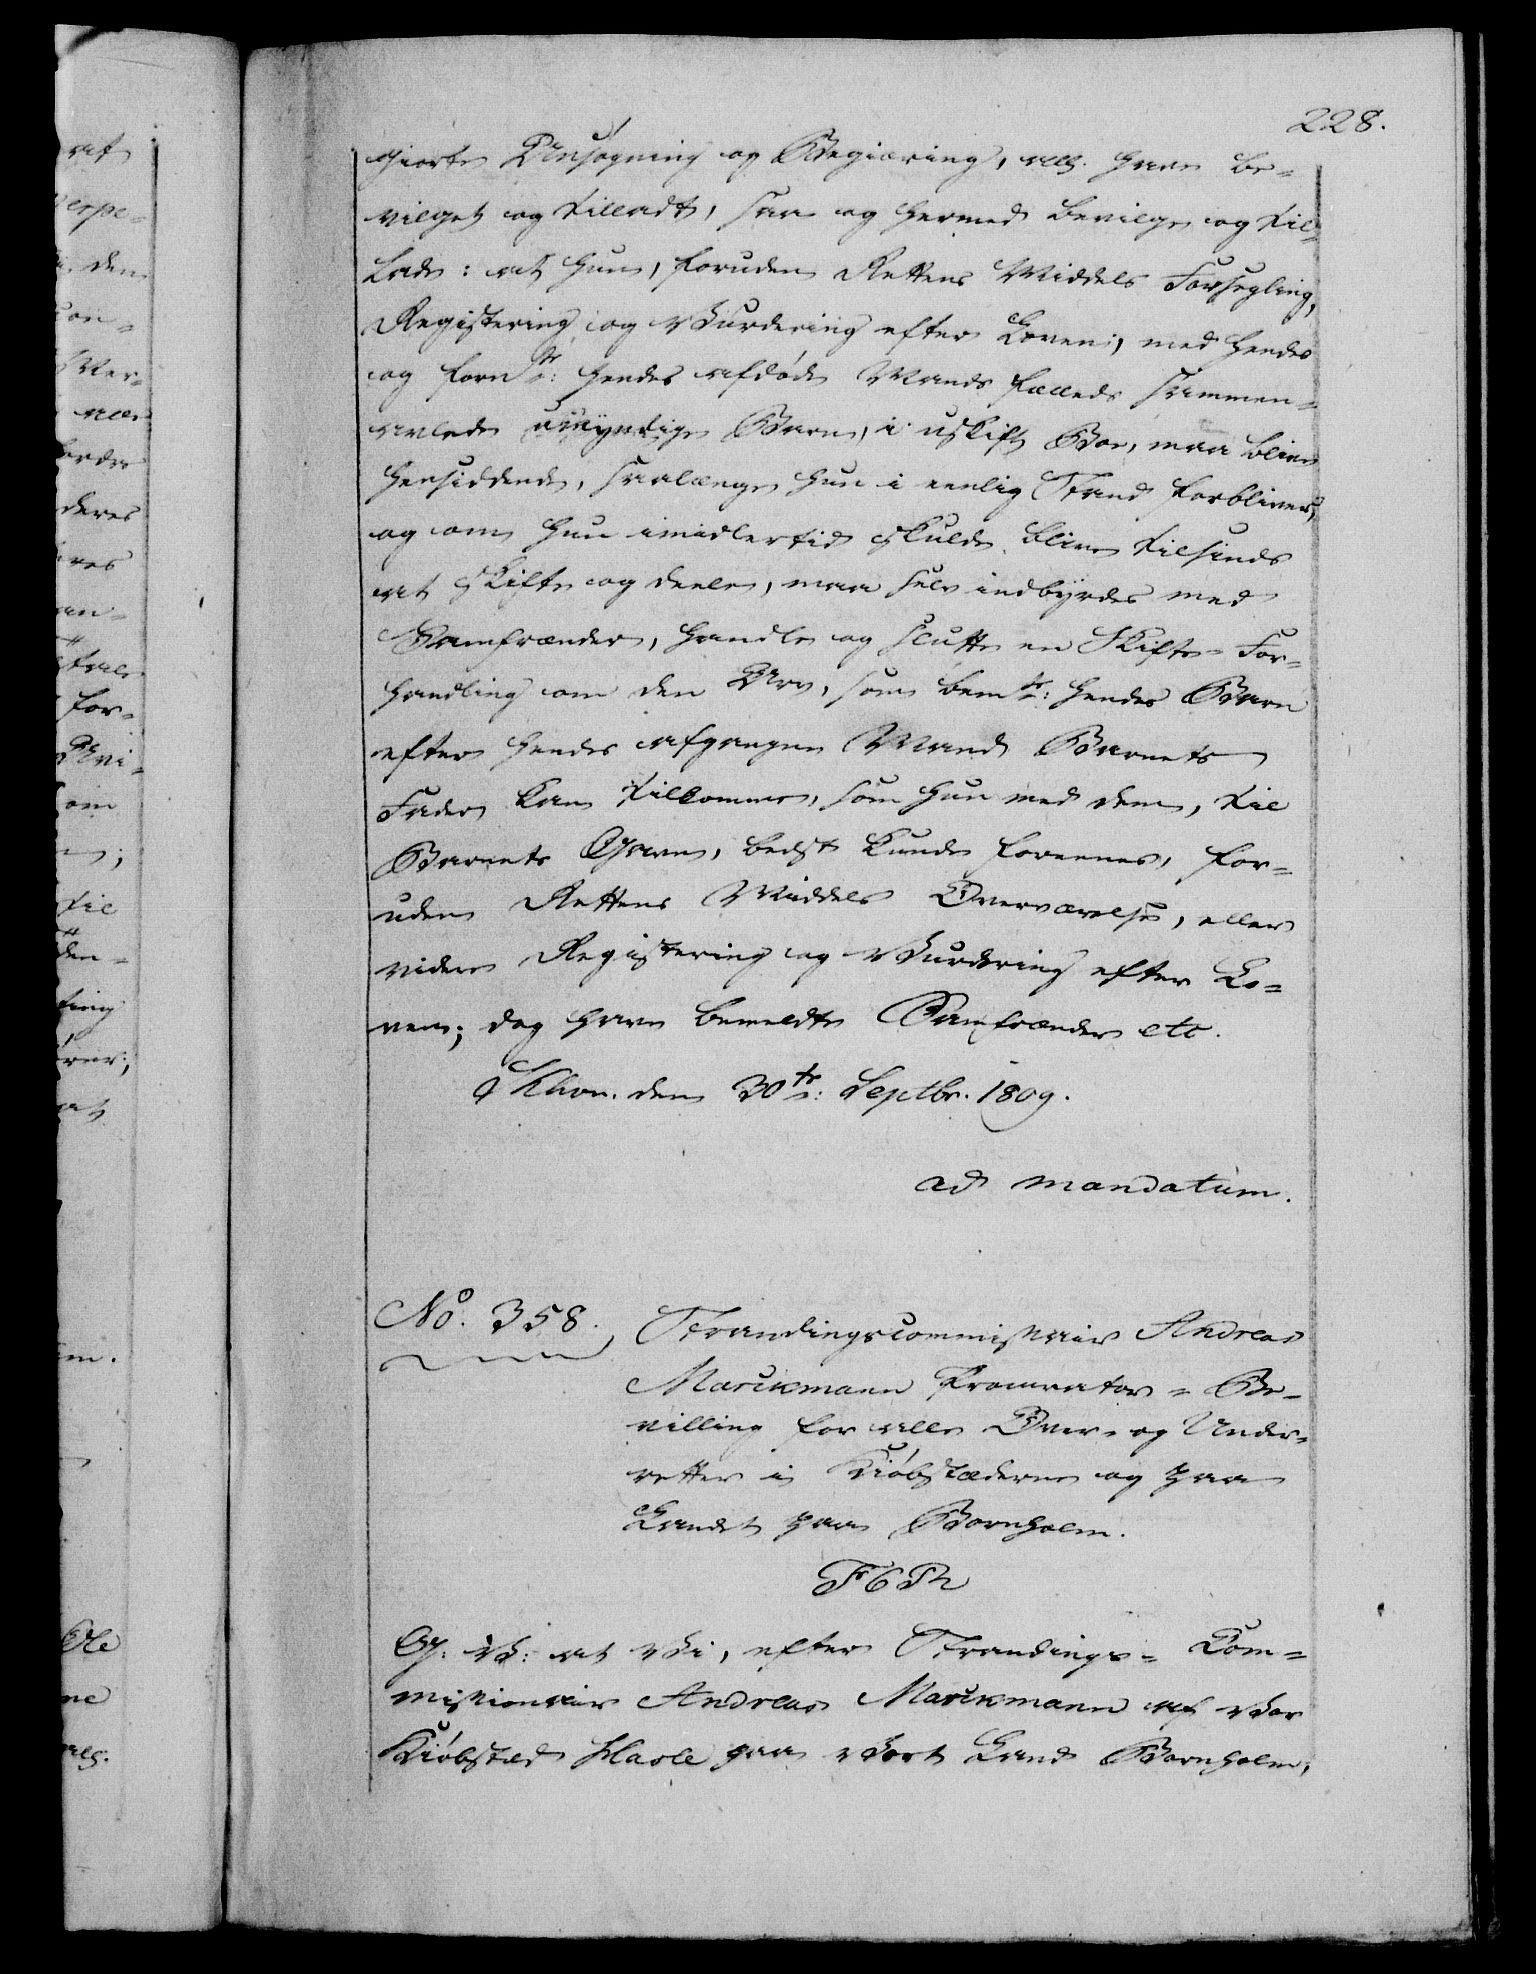 228.
giorte Ansøgning og Begiæring, allg. have be-
vilget og tilladt, saa og hermed bevilge og til-
lade: at hun, foruden Rettens Middels Forsegling,
Registering og Vurdering efter Loven, med hendes
og fornte: hendes afdøde Mands fælleds sammen-
avlede umyndige Barn, i uskift Boe, maa blive
hensiddende, saalænge hun i eenlig Stand forbliver,
og om hun imidlertid skulde blive tilsinds
at skifte og deele, maa selv indbyrdes med
Samfrænder, handle og slutte en Skifte- For-
handling om den Arv, som bemte: hendes Barn
efter hendes afgangne Mand Barnets
Fader kan tilkomme, som hun med dem, til
Barnets Gavn, bedst kunde foreenes, for-
uden Rettens Middels Overværelse, eller
videre Registering og Vurdering efter Lo-
ven; dog have bemeldte Samfrænder etc.
Khvn. den 30te: Septbr. 1809.
ad mandatum.
No. 358.
Strandingscommissair Andreas
Marckmann Procurator- Be-
villing for alle Over- og Under-
retter i Kiøbstæderne og paa
Landet paa Bornholm.
F 6 R
G: V: at Vi, efter Strandings- Com-
missionair Andreas Marckmann af Vor
Kiøbsted Hasle paa Vort Land Bornholm,